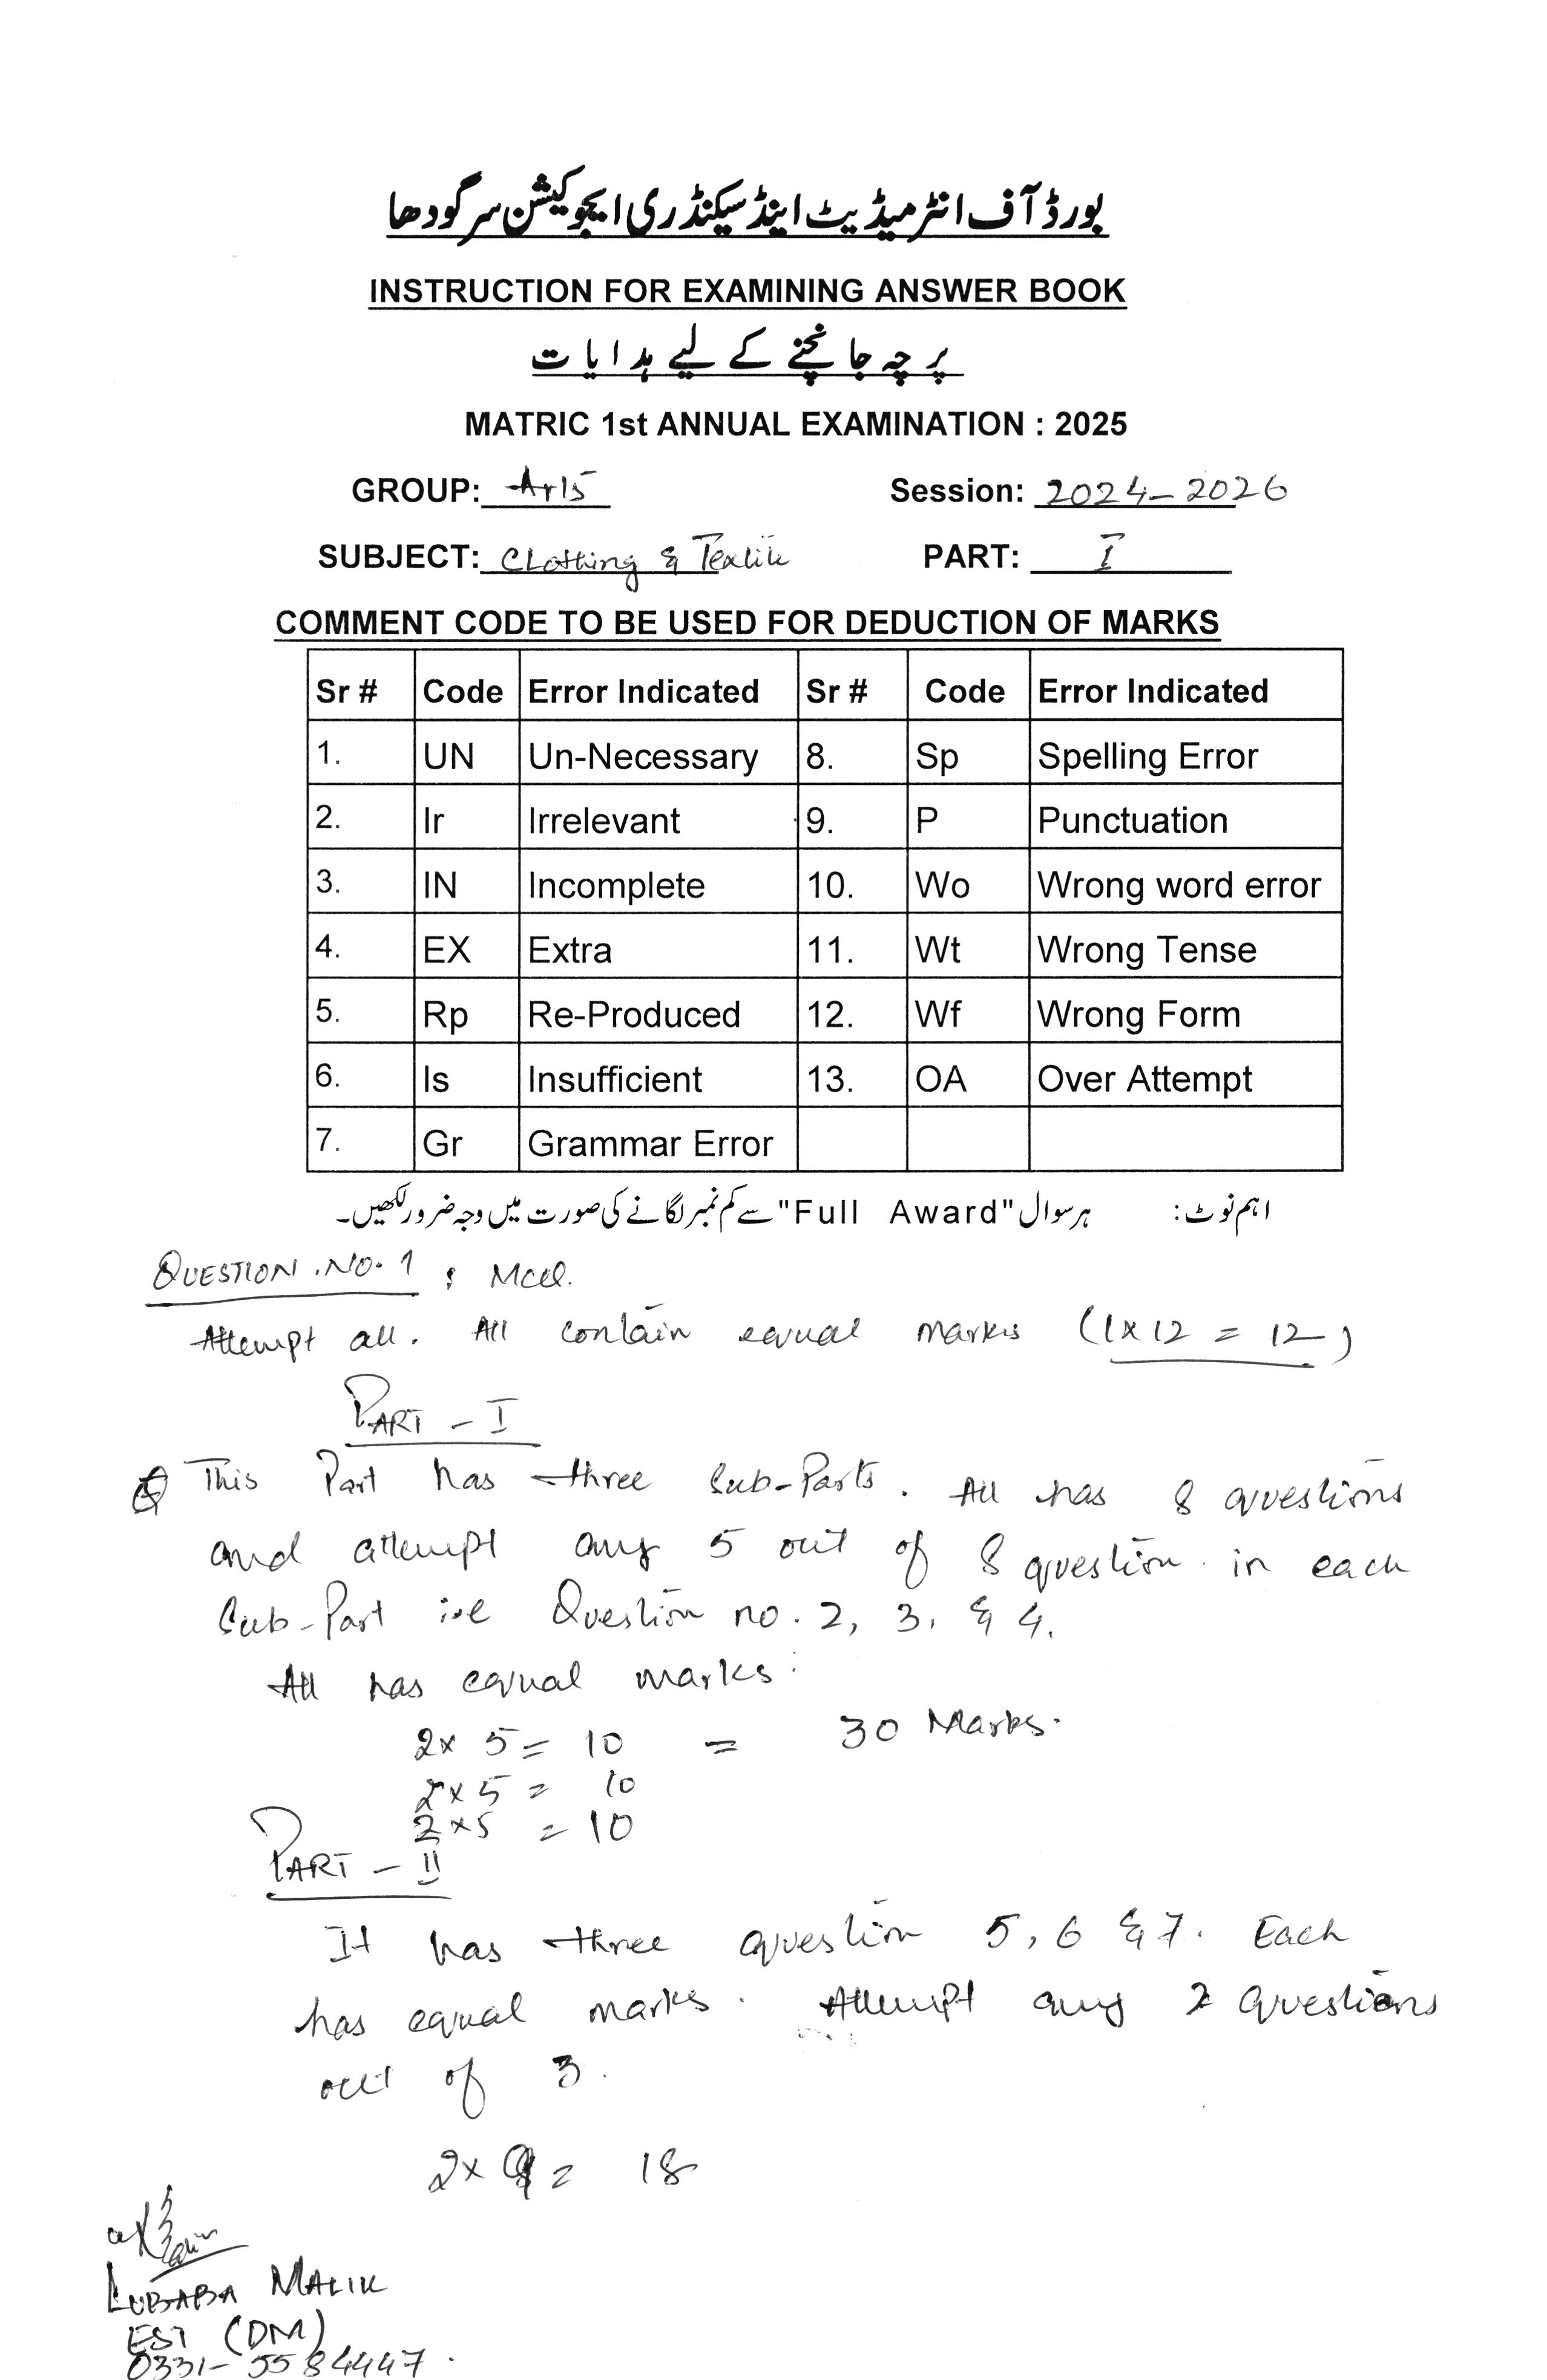 بورڈ آف انٹرمیڈیٹ اینڈ سیکنڈری ایجوکیشن سرگودھا
INSTRUCTION FOR EXAMINING ANSWER BOOK
پرچہ جانچنے کے لیے ہدایات
MATRIC 1st ANNUAL EXAMINATION : 2025
GROUP: Arts Session: 2024-2026
SUBJECT: Clothing & Textile PART: I
COMMENT CODE TO BE USED FOR DEDUCTION OF MARKS
Sr # Code Error Indicated Sr # Code Error Indicated
1. UN Un-Necessary 8. Sp Spelling Error
2. Ir Irrelevant 9. P Punctuation
3. IN Incomplete 10. Wo Wrong word error
4. EX Extra 11. Wt Wrong Tense
5. Rp Re-Produced 12. Wf Wrong Form
6. Is Insufficient 13. OA Over Attempt
7. Gr Grammar Error
اہم نوٹ: ہر سوال "Full Award" سے کم نمبر لگانے کی صورت میں وجہ ضرور لکھیں۔
QUESTION .NO. 1 :
Attempt all. All contain equal marks (1x12 = 12)
PART - I
This Part has three Sub-Parts. All has 8 questions
and attempt any 5 out of 8 question in each
Sub-Part i.e Question no. 2, 3, & 4.
All has equal marks:
2x 5= 10 = 30 Marks.
2x5 = 10
2x5 = 10
PART - II
It has three question 5, 6 & 7. Each
has equal marks. Attempt any 2 questions
out of 3.
2x 9= 18
LUBABA MALIK
EST (DM)
0331-5584447.